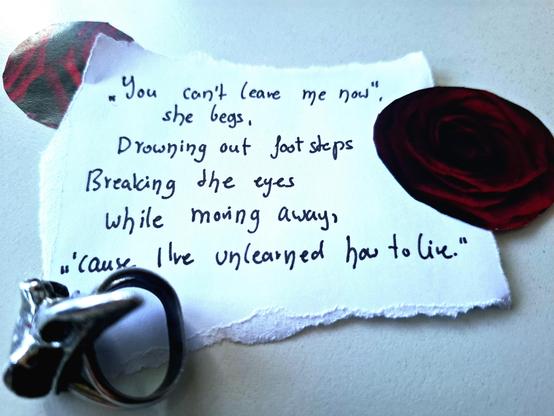 „You can't leave me now",
she begs,
Drowning out footsteps
Breaking the eyes
while moving away,
„'cause I've unlearned how to live."